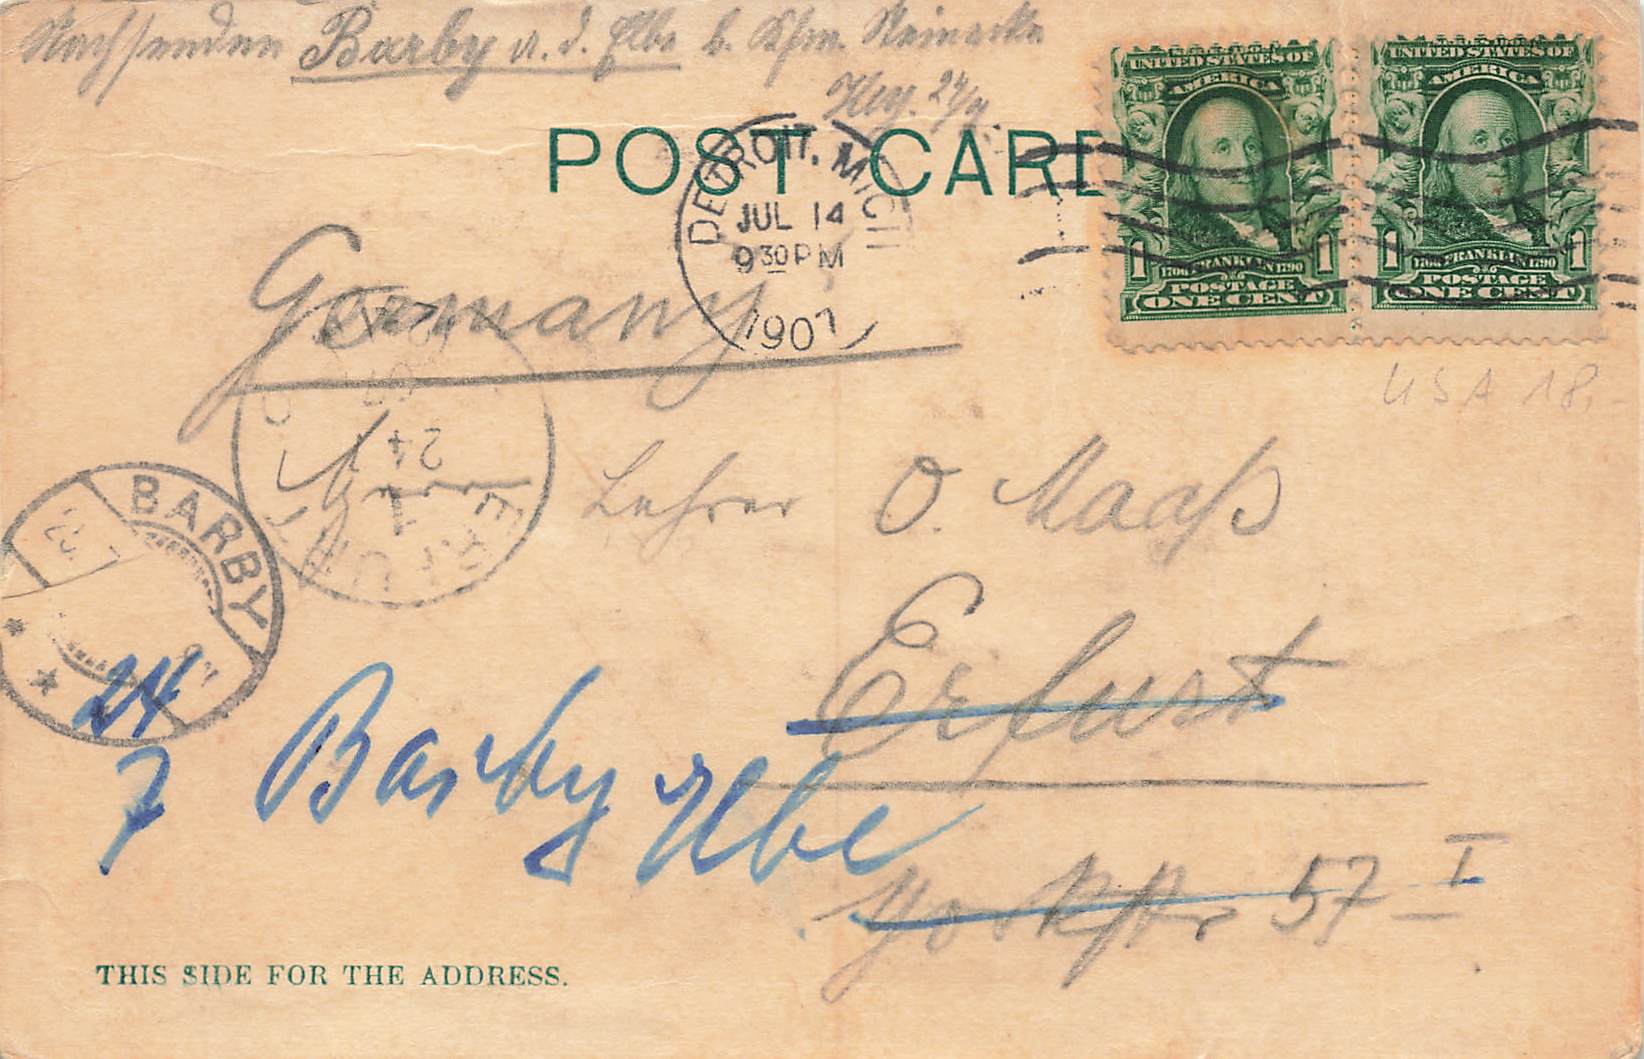 Nachsenden Barby a. d. Elbe b. Kfm. Steinecke
24/7.
POST CARD
DETROIT, MICH
JUL 14
9 30 PM
1907
UNITED STATES OF AMERICA
1 FRANKLIN 1790 1
POSTAGE
ONE CENT
UNITED STATES OF AMERICA
1 FRANKLIN 1790 1
POSTAGE
ONE CENT
Germany
USA 18,-
ERFURT
1
24
07
Lehrer O. Maaß
BARBY
Erfurt
24
7
Barby Elbe
Yorkstr 57 I
THIS SIDE FOR THE ADDRESS.